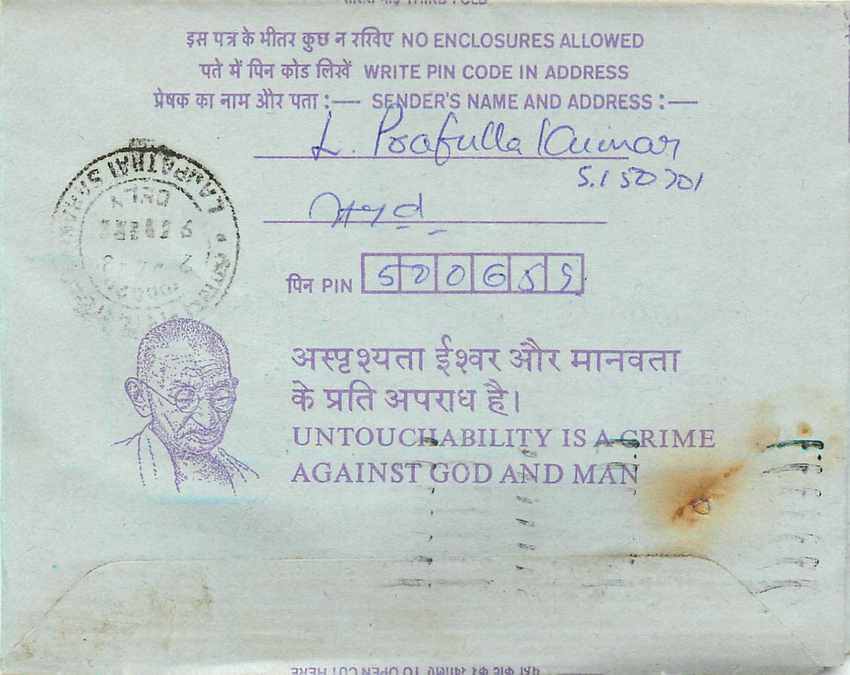 THIRD FOLD
इस पत्र के भीतर कुछ न रखिए NO ENCLOSURES ALLOWED
पते में पिन कोड लिखें WRITE PIN CODE IN ADDRESS
प्रेषक का नाम और पता :— SENDER'S NAME AND ADDRESS :—
L. Prafulla Kumar
S.I 50701
Hyd
पिन PIN 500659
LAJPATRAI
अस्पृश्यता ईश्वर और मानवता
के प्रति अपराध है।
UNTOUCHABILITY IS A CRIME
AGAINST GOD AND MAN
TO OPEN CUT HERE